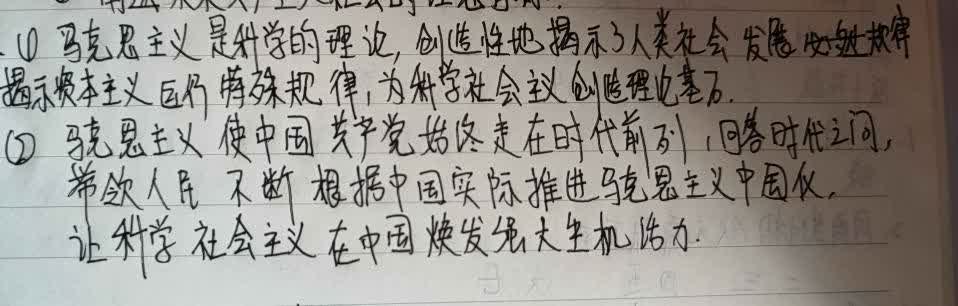 ① 马克思主义是科学的理论,创造性地揭示了人类社会发展必然规律
揭示资本主义运行特殊规律,为科学社会主义创造理论基石.
② 马克思主义使中国共产党始终走在时代前列,回答时代之问,
带领人民不断根据中国实际推进马克思主义中国化,
让科学社会主义在中国焕发强大生机活力.